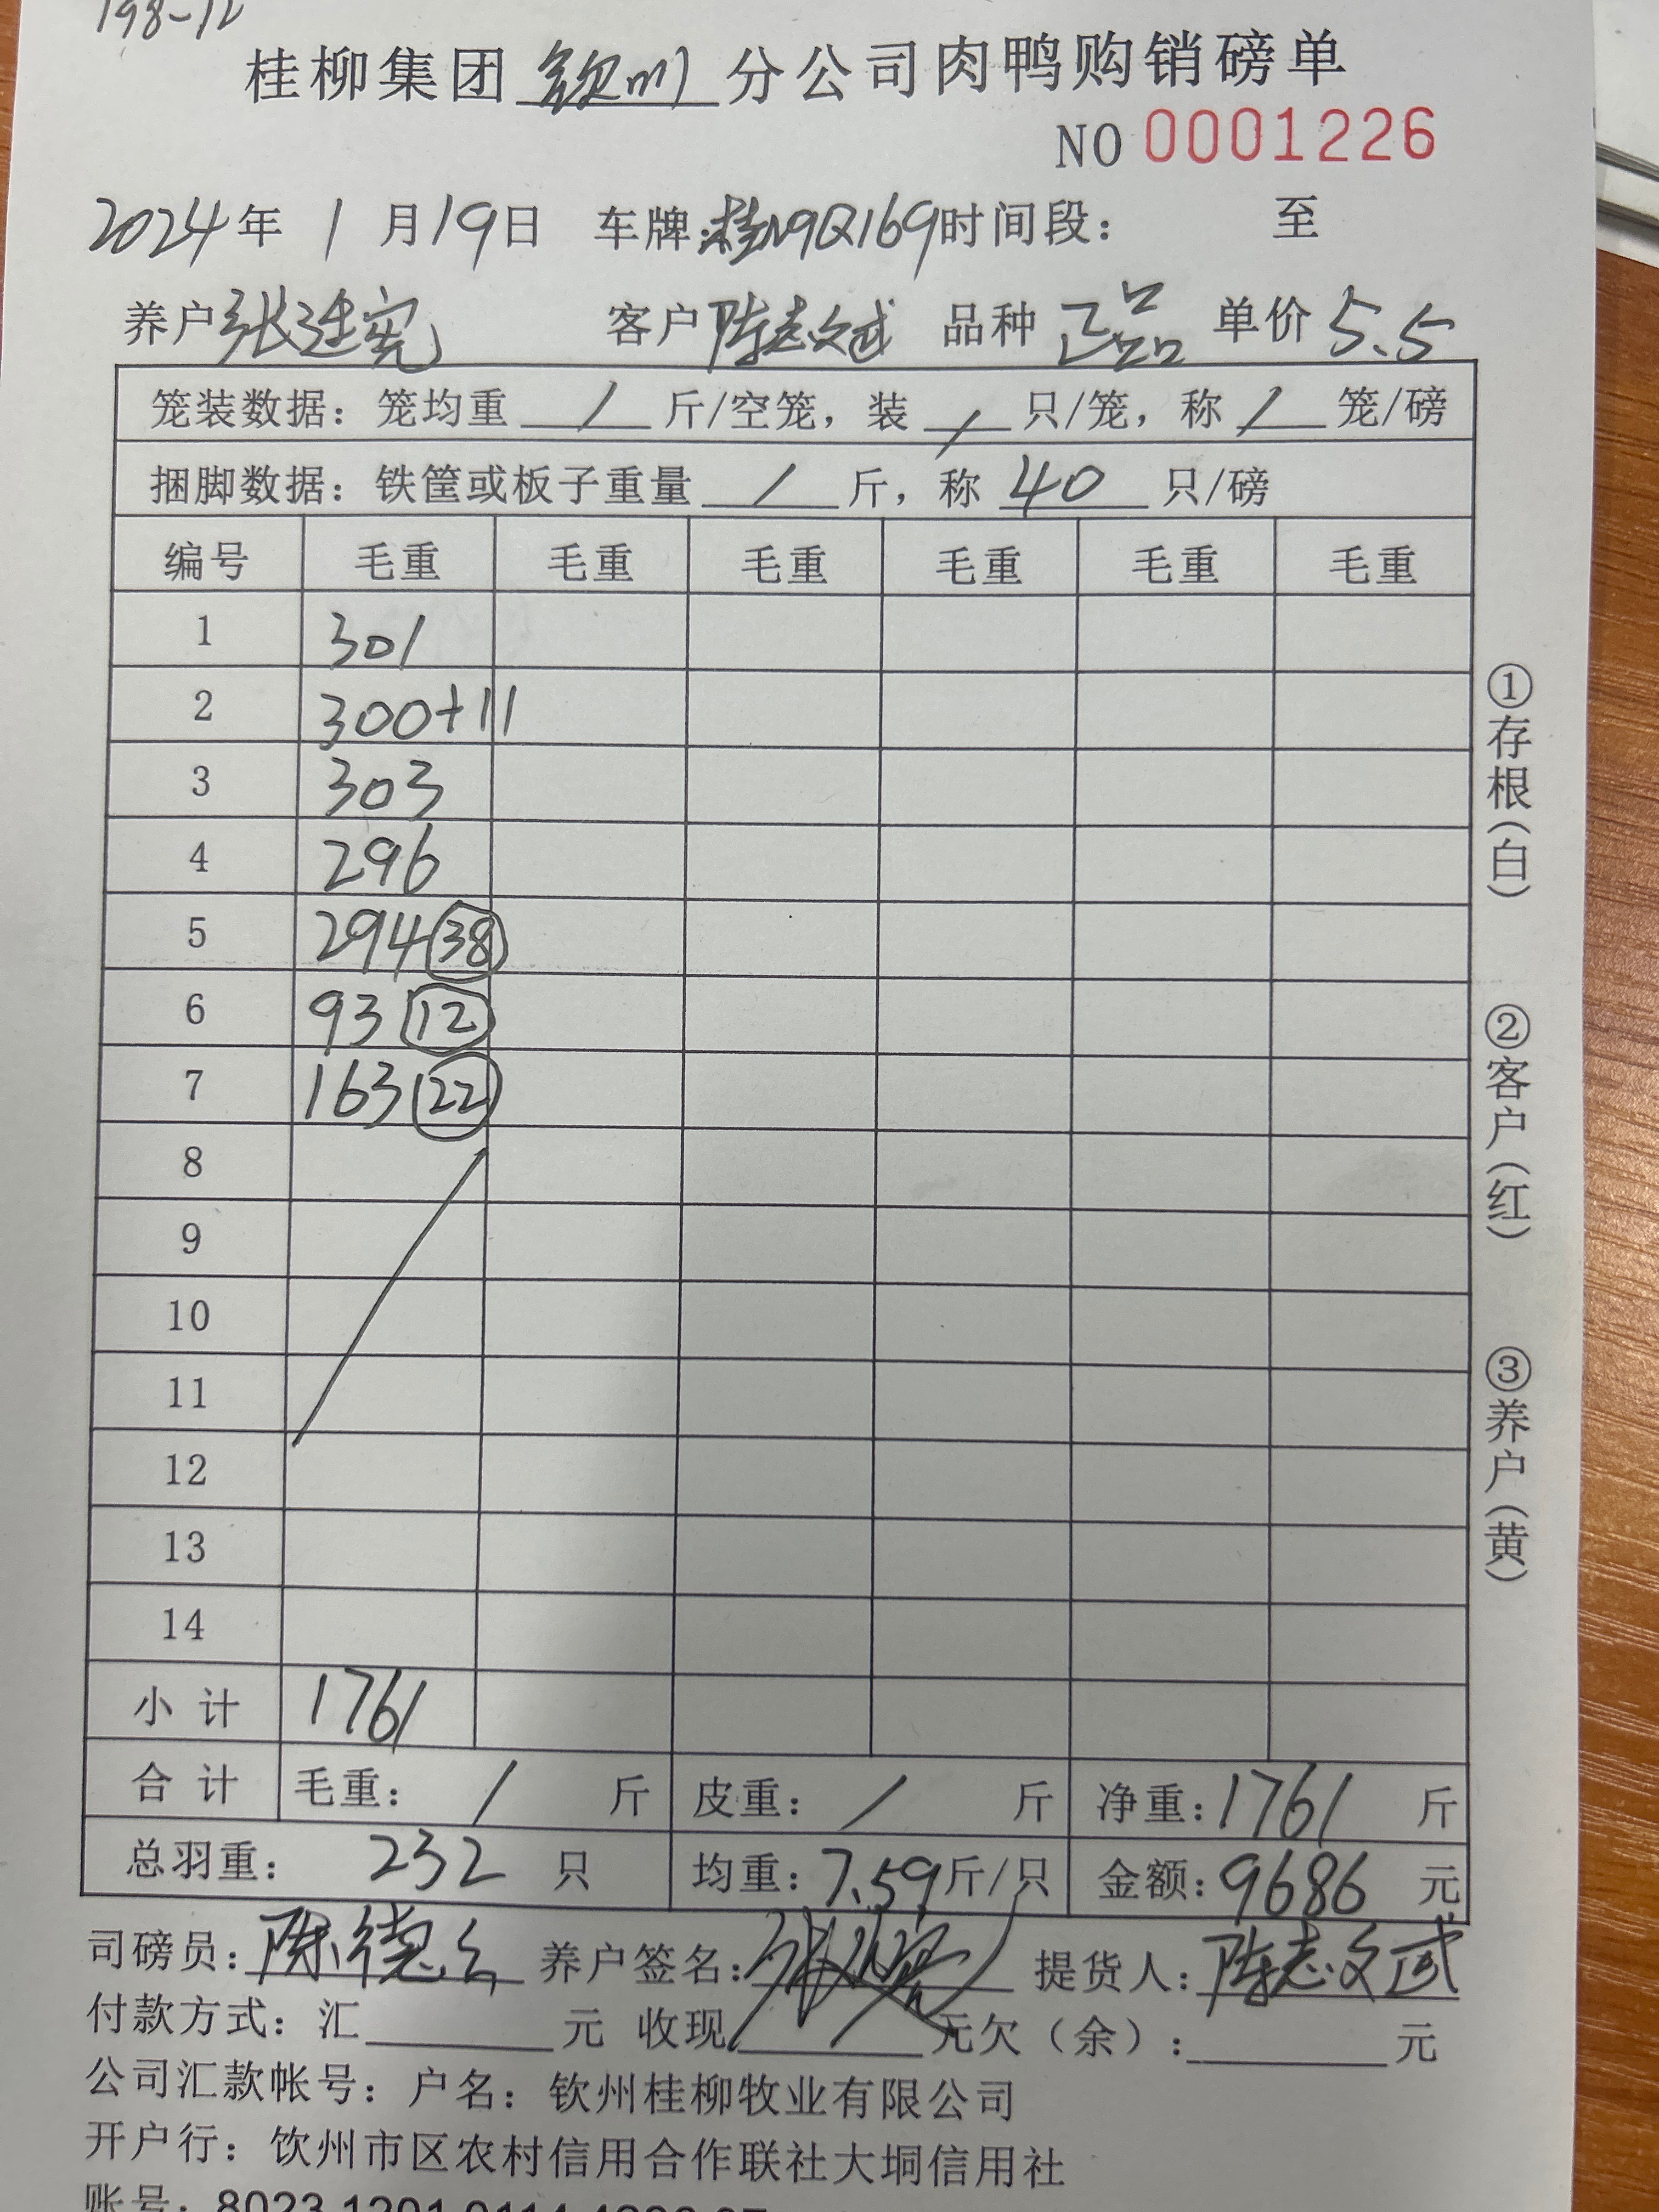 198-12
桂柳集团 钦州 分公司肉鸭购销磅单
NO 0001226
2024年 1 月19日 车牌:桂N9Q169时间段: 至
养户 张廷宪 客户 陈志斌 品种 正品 单价 5.5
笼装数据: 笼均重 / 斤/空笼, 装 / 只/笼, 称 / 笼/磅
捆脚数据: 铁筐或板子重量 / 斤, 称 40 只/磅
编号 毛重 毛重 毛重 毛重 毛重 毛重
1 301
2 300+11
3 303
4 296
5 294 38
6 93 12
7 163 22
8
9
10
11
12
13
14
小 计 1761
合 计 毛重: / 斤 皮重: / 斤 净重: 1761 斤
总羽重: 232 只 均重: 7.59斤/只 金额: 9686 元
①存根(白) ②客户(红) ③养户(黄)
司磅员: 陈德 养户签名: 提货人: 陈志斌
付款方式: 汇 元 收现 元欠(余): 元
公司汇款帐号: 户名: 钦州桂柳牧业有限公司
开户行: 钦州市区农村信用合作联社大垌信用社
账号: